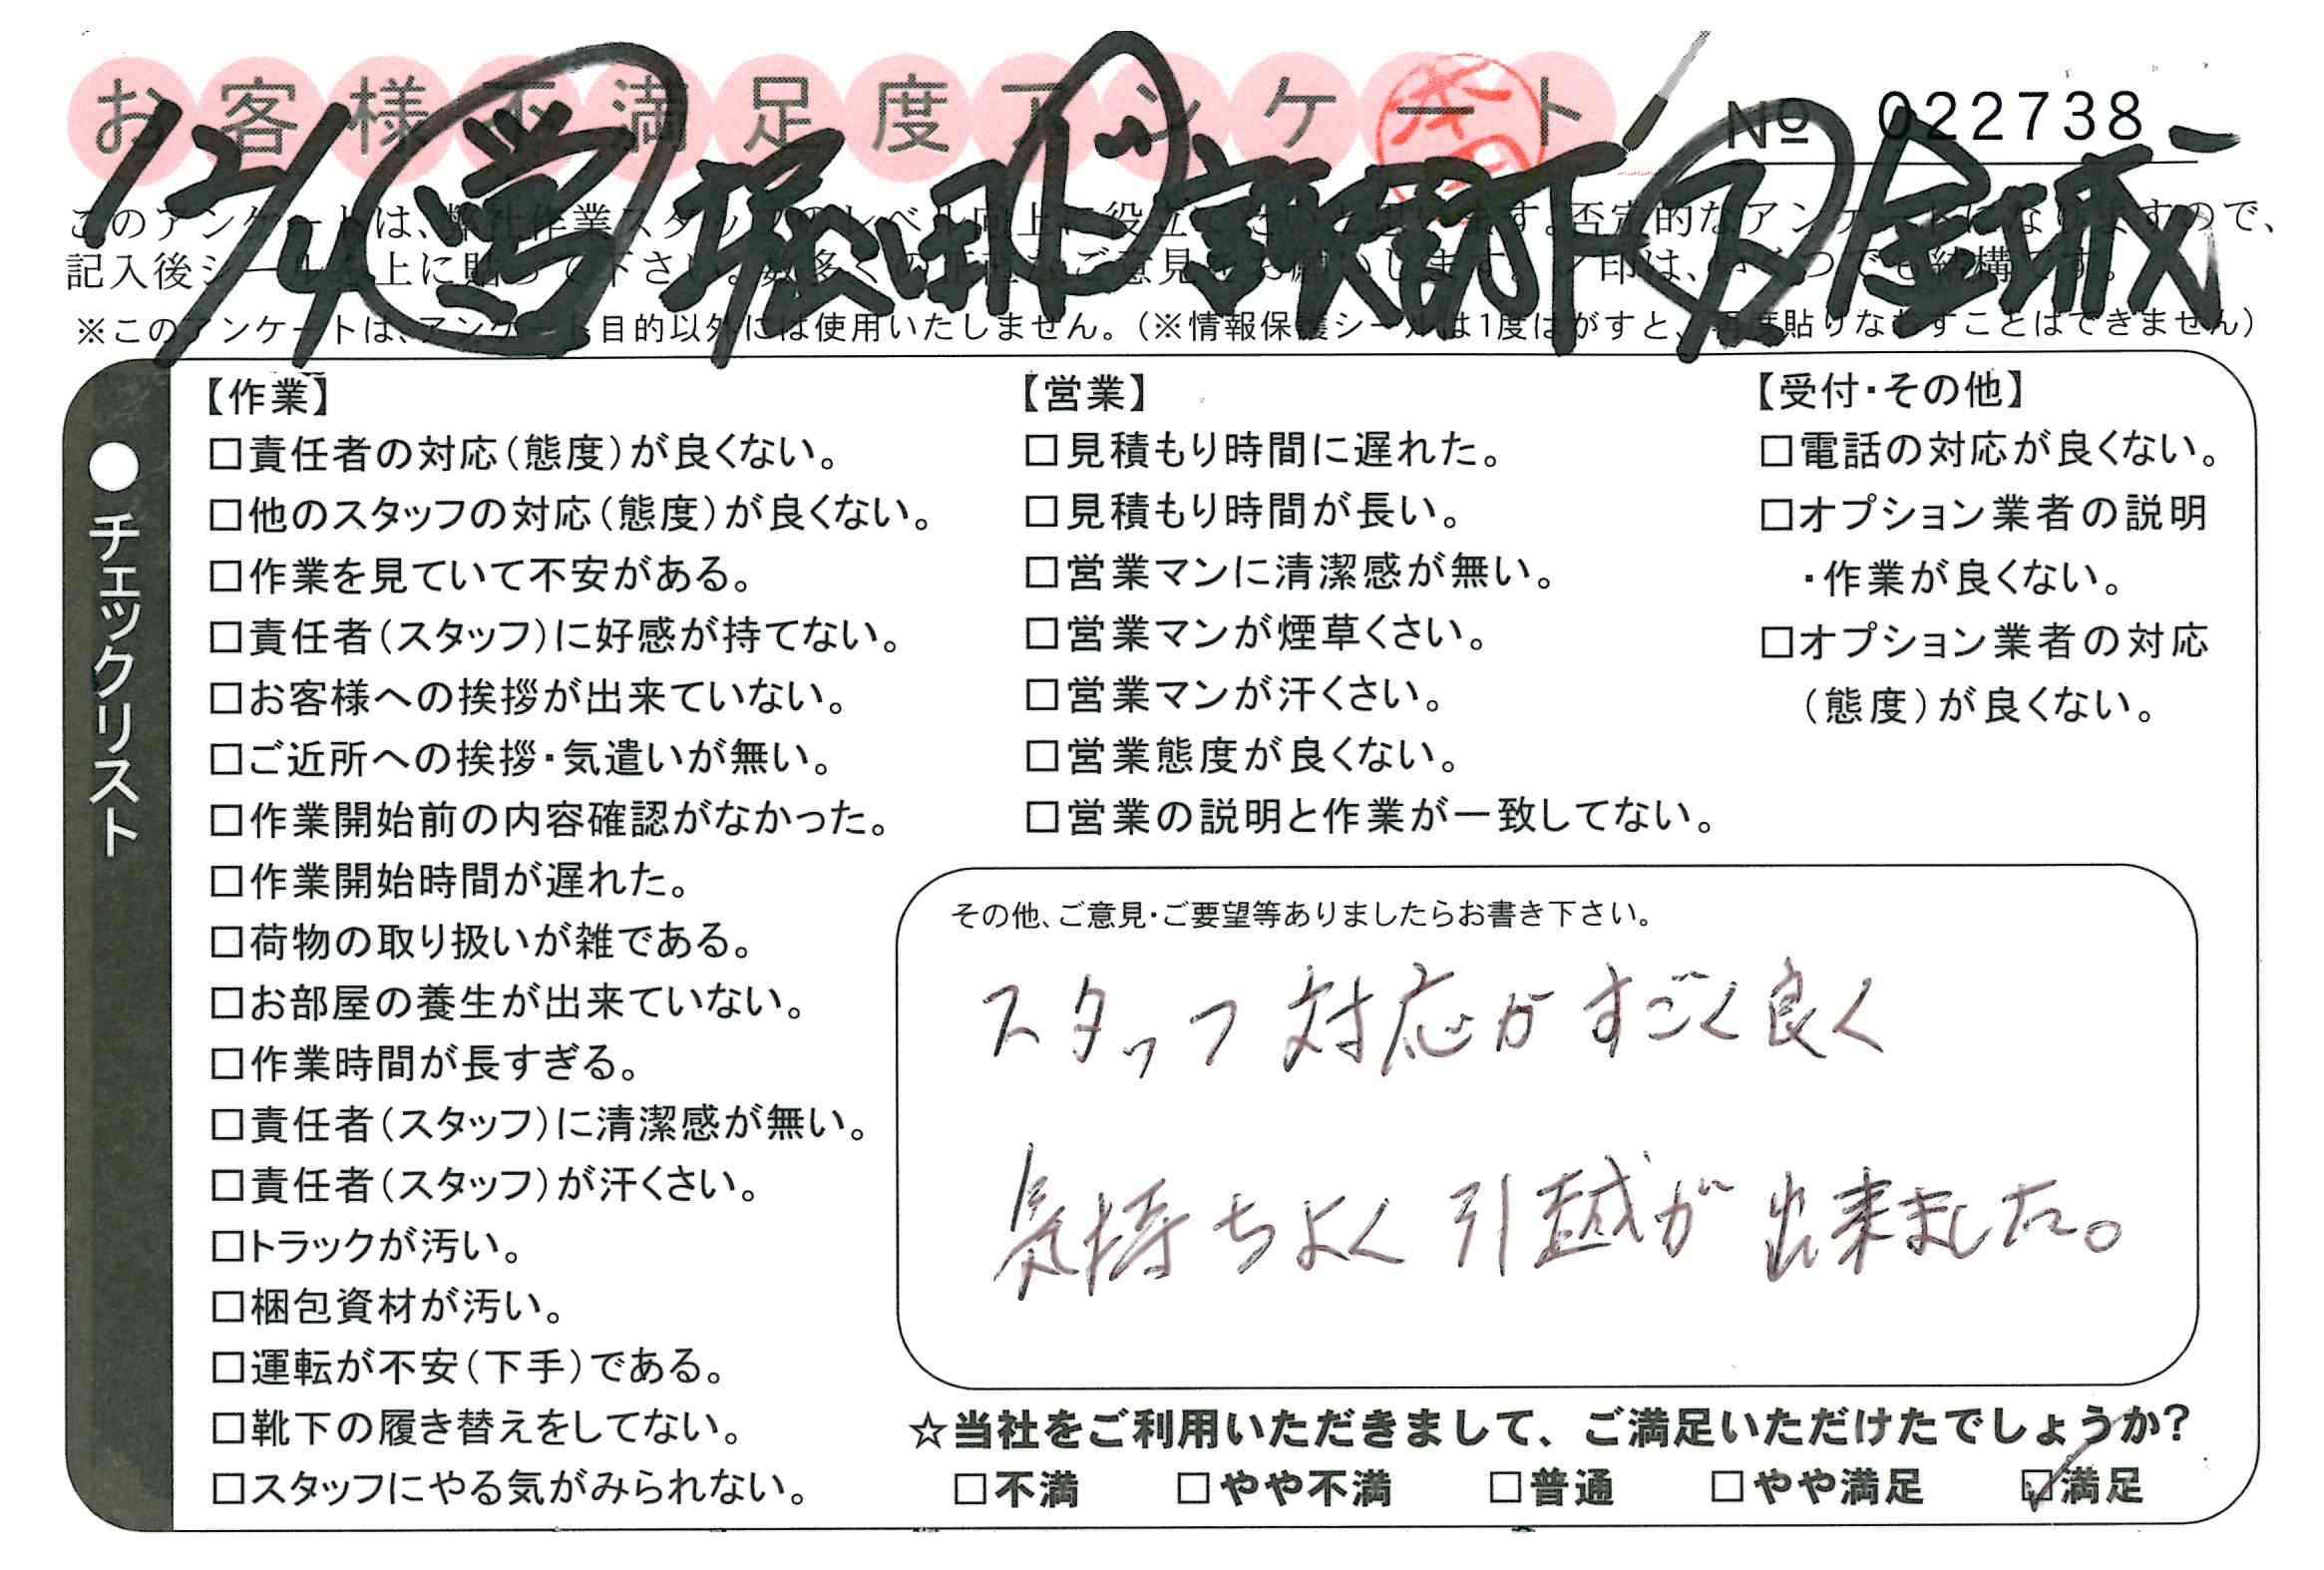 お客様不満足度アンケート
№ 022738
12/4 営 堀田 ト 諏訪下 ス 金城
※このアンケートは、アンケート目的以外には使用いたしません。(※情報保護シールは1度はがすと、再度貼りなおすことはできません)
●チェックリスト
【作業】
□責任者の対応(態度)が良くない。
□他のスタッフの対応(態度)が良くない。
□作業を見ていて不安がある。
□責任者(スタッフ)に好感が持てない。
□お客様への挨拶が出来ていない。
□ご近所への挨拶・気遣いが無い。
□作業開始前の内容確認がなかった。
□作業開始時間が遅れた。
□荷物の取り扱いが雑である。
□お部屋の養生が出来ていない。
□作業時間が長すぎる。
□責任者(スタッフ)に清潔感が無い。
□責任者(スタッフ)が汗くさい。
□トラックが汚い。
□梱包資材が汚い。
□運転が不安(下手)である。
□靴下の履き替えをしてない。
□スタッフにやる気がみられない。
【営業】
□見積もり時間に遅れた。
□見積もり時間が長い。
□営業マンに清潔感が無い。
□営業マンが煙草くさい。
□営業マンが汗くさい。
□営業態度が良くない。
□営業の説明と作業が一致してない。
【受付・その他】
□電話の対応が良くない。
□オプション業者の説明
・作業が良くない。
□オプション業者の対応
(態度)が良くない。
その他、ご意見・ご要望等ありましたらお書き下さい。
スタッフ対応がすごく良く
気持ちよく引越が出来ました。
☆当社をご利用いただきまして、ご満足いただけたでしょうか?
□不満 □やや不満 □普通 □やや満足 ☑満足